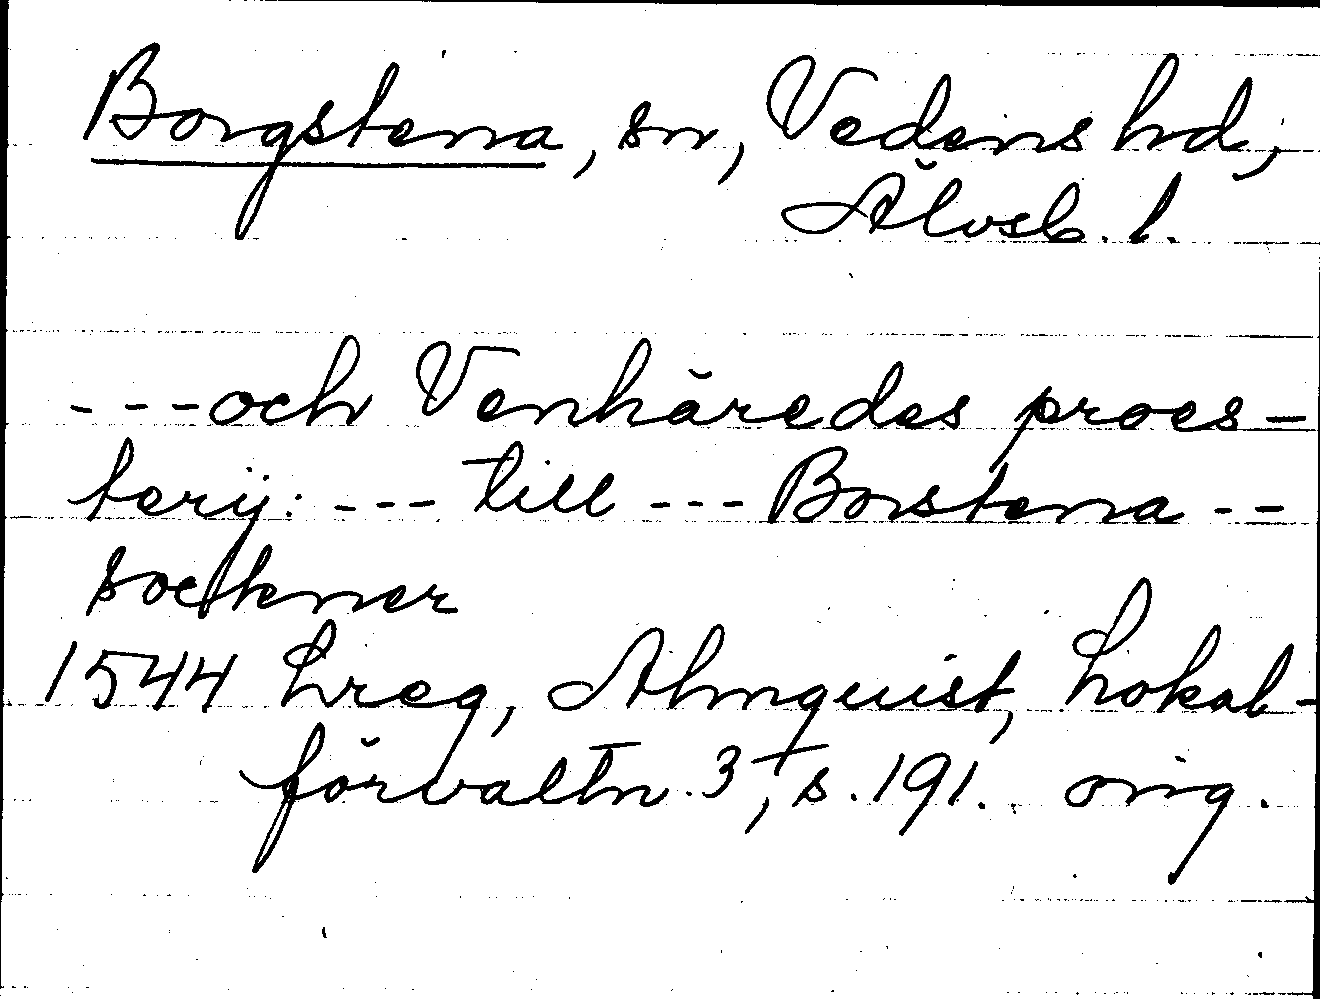 Borgstena, sn, Vedens hd,
Älvsb. l.
---och Venhäredes proes-
terij: --- till --- Borstena --
sockener
1544 Lreg, Almquist, Lokal-
förvaltn. 3, s. 191. orig.